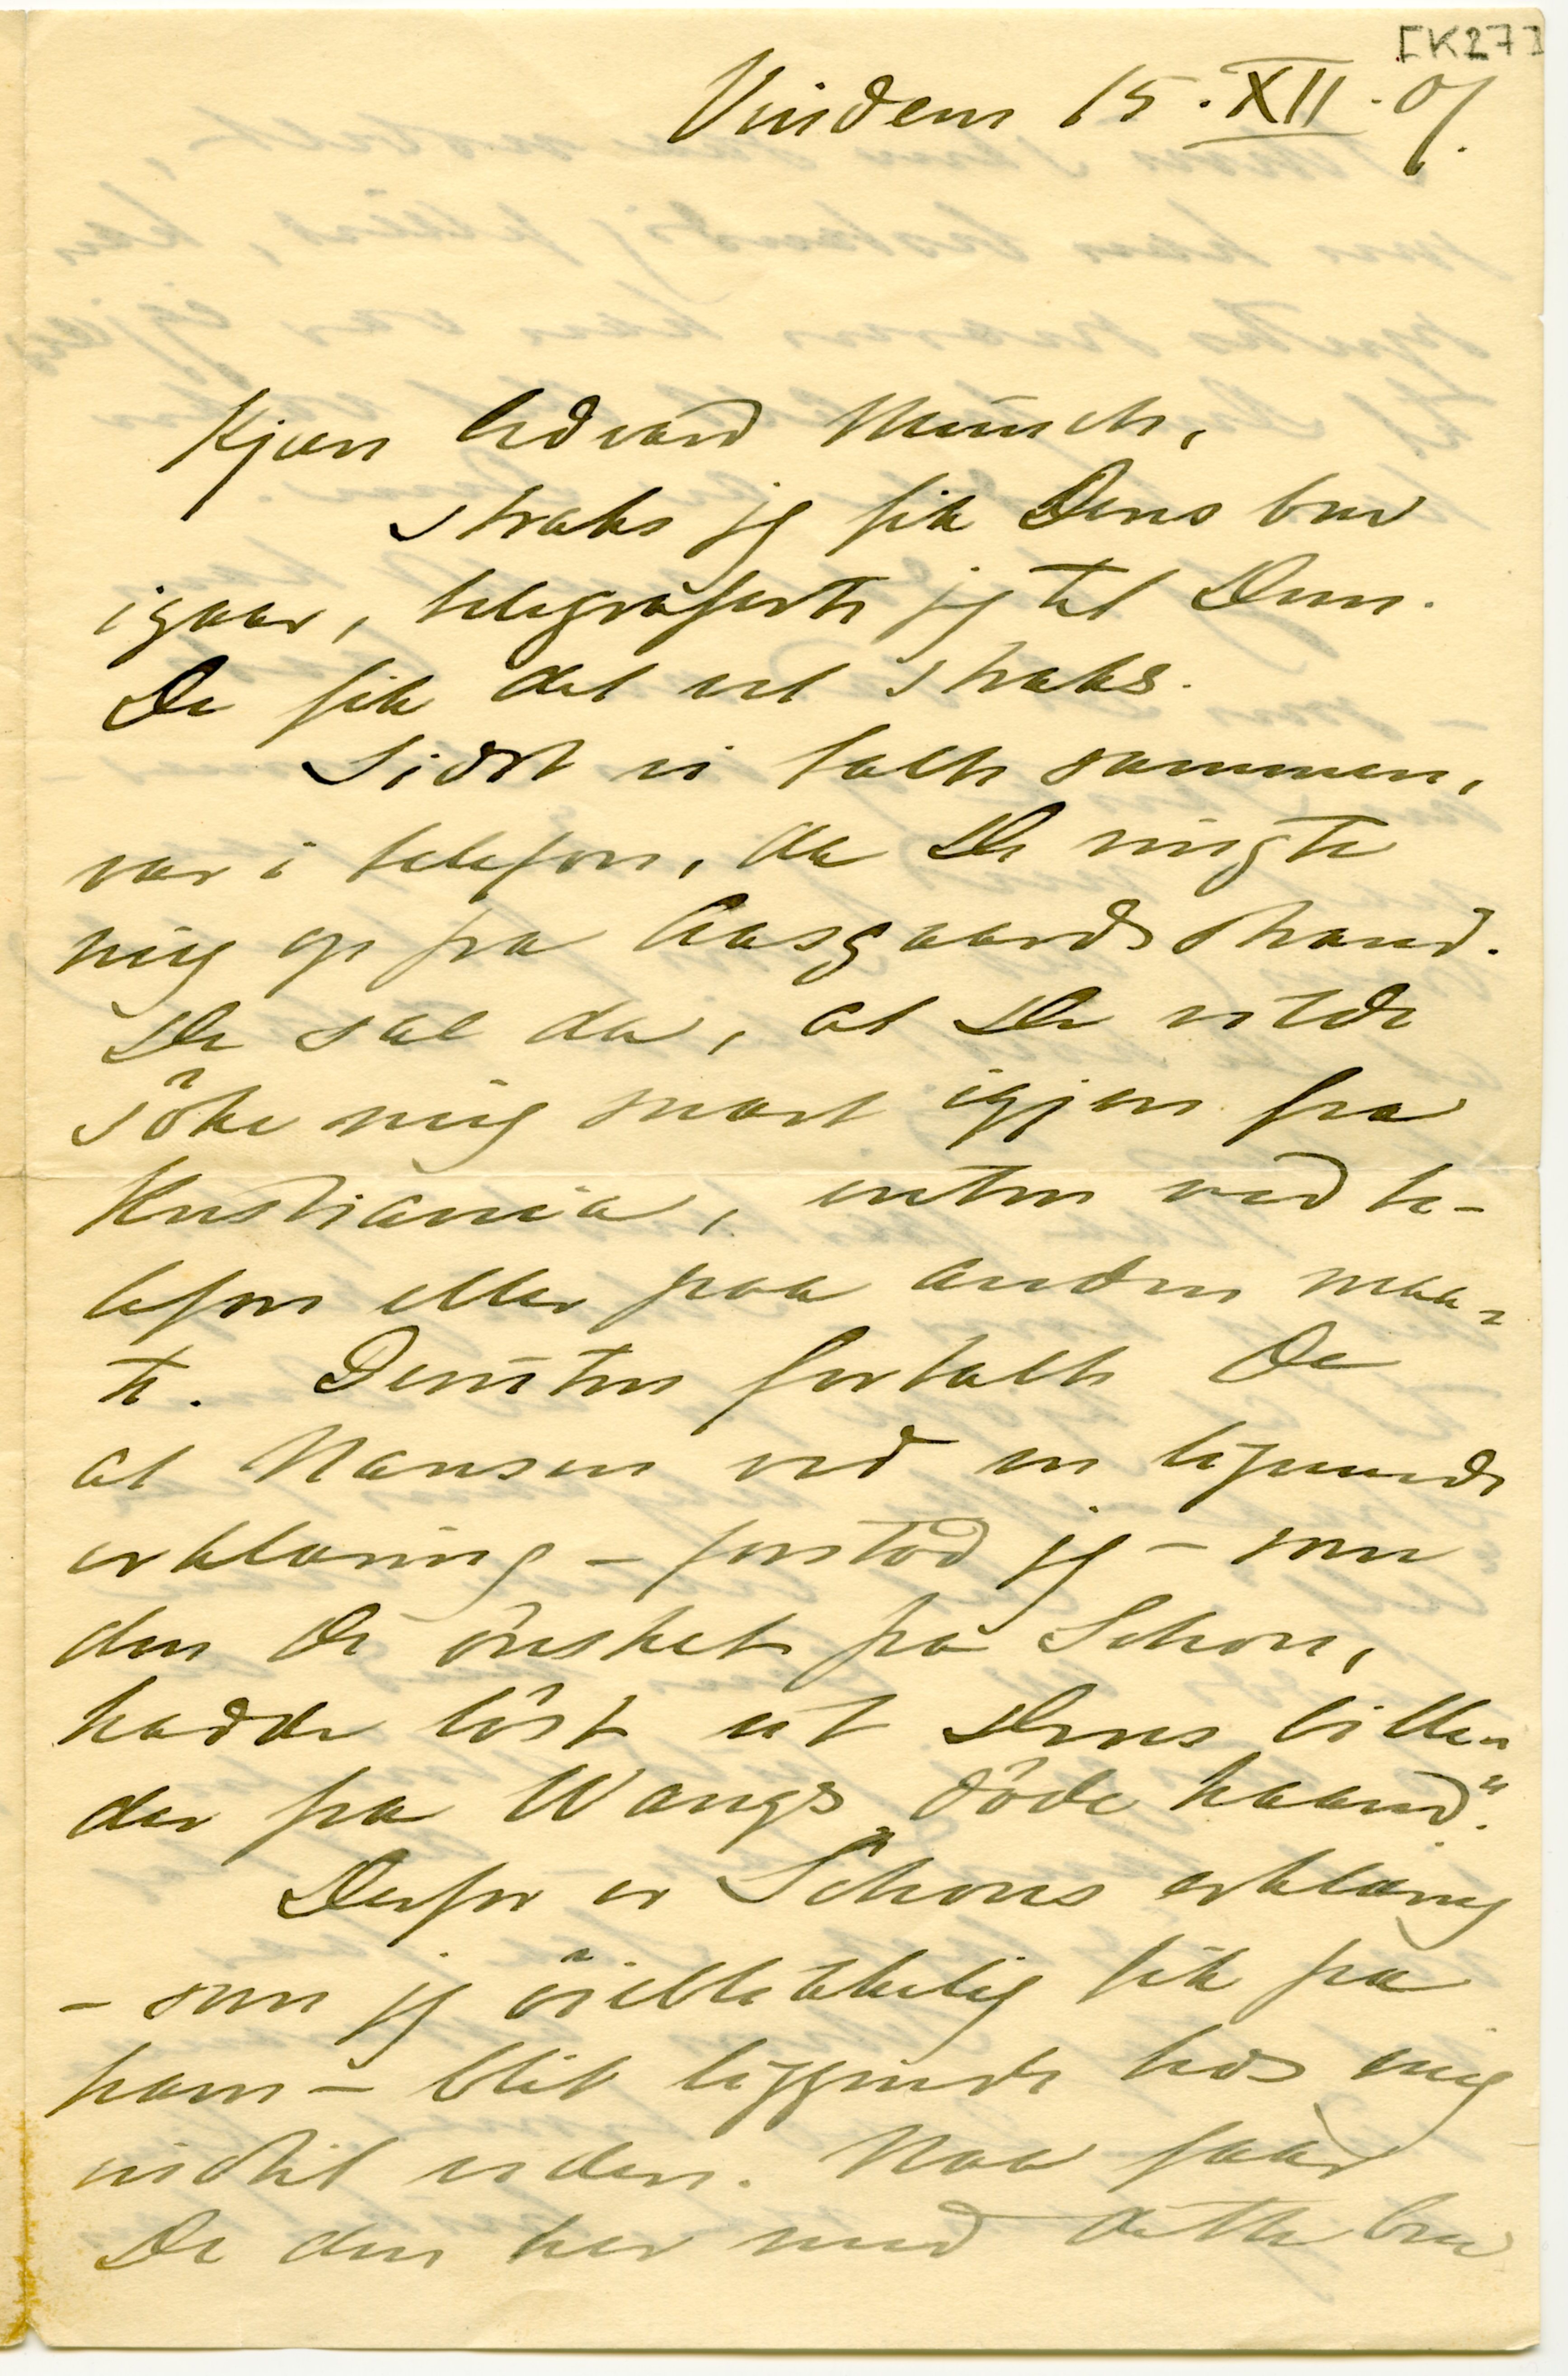 [K27]
Vinderen 15.XII.07.
Kjære Edvard Munch,
straks jeg fik Deres brev
igaar, telegraferte jeg til Dem.
De fik det vel straks.
Sidst vi talte sammen,
var i telefon, da De ringte
mig op fra Aasgaardsstrand.
De sae da, at De vilde
söke mig snart igjen fra
Kristiania, enten ved te-
lefon eller paa anden maa-
te. Desuten fortalte De
at Hansen ved en lignende
erklæring – forstod jeg – som
den De önsket fra Schou,
hadde löst ut Deres bille-
der fra Wangs „döde haand“.
Derfor er Schous erklæring
– som jeg öieblikkelig fik fra
ham – blit liggende hos mig
indtil viden. Naa faar
De den her med dette brev